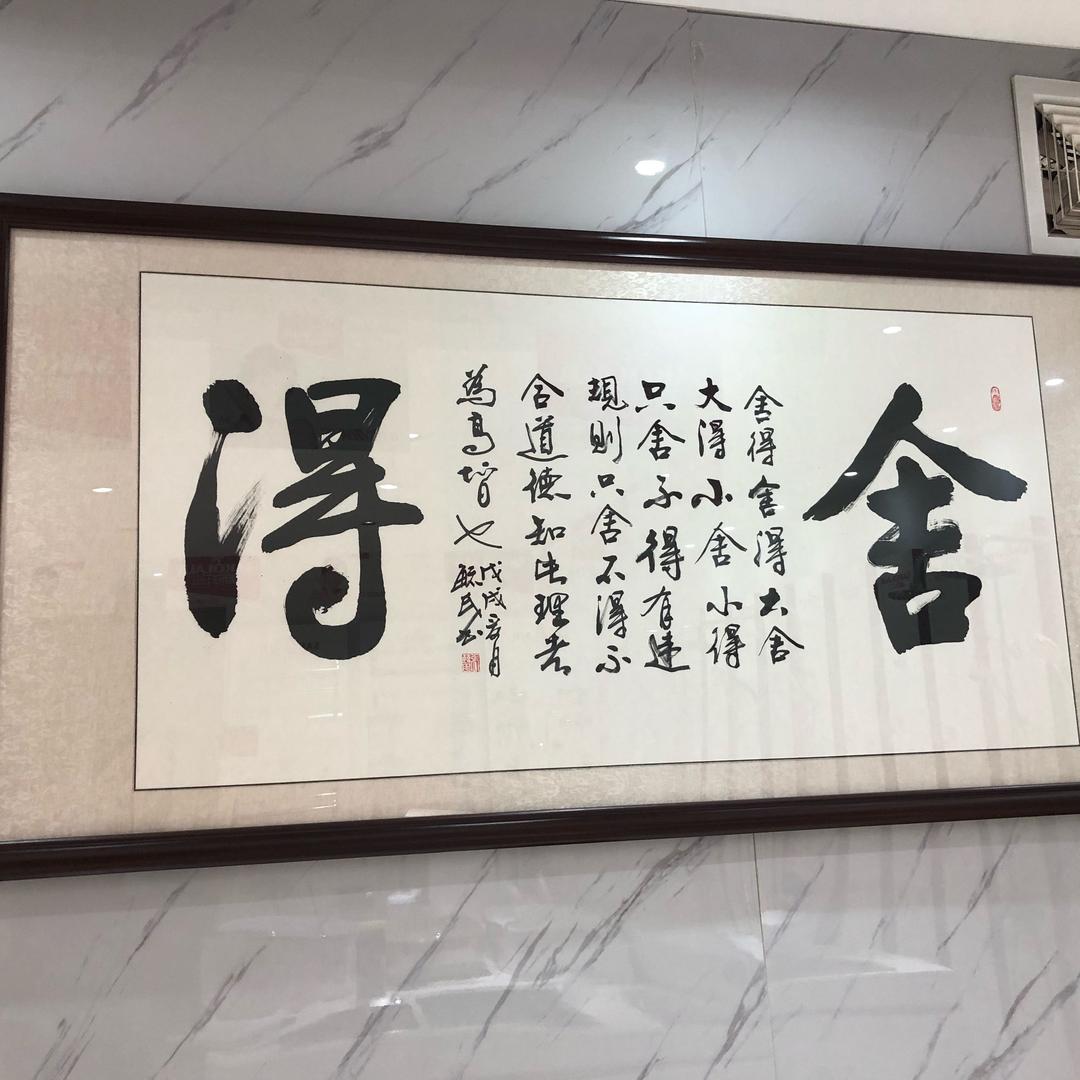 舍
舍得舍得大舍
大得小舍小得
只舍不得有违
規則只舍不得不
合道德知此理者
為高智也
戊戌
民书
得